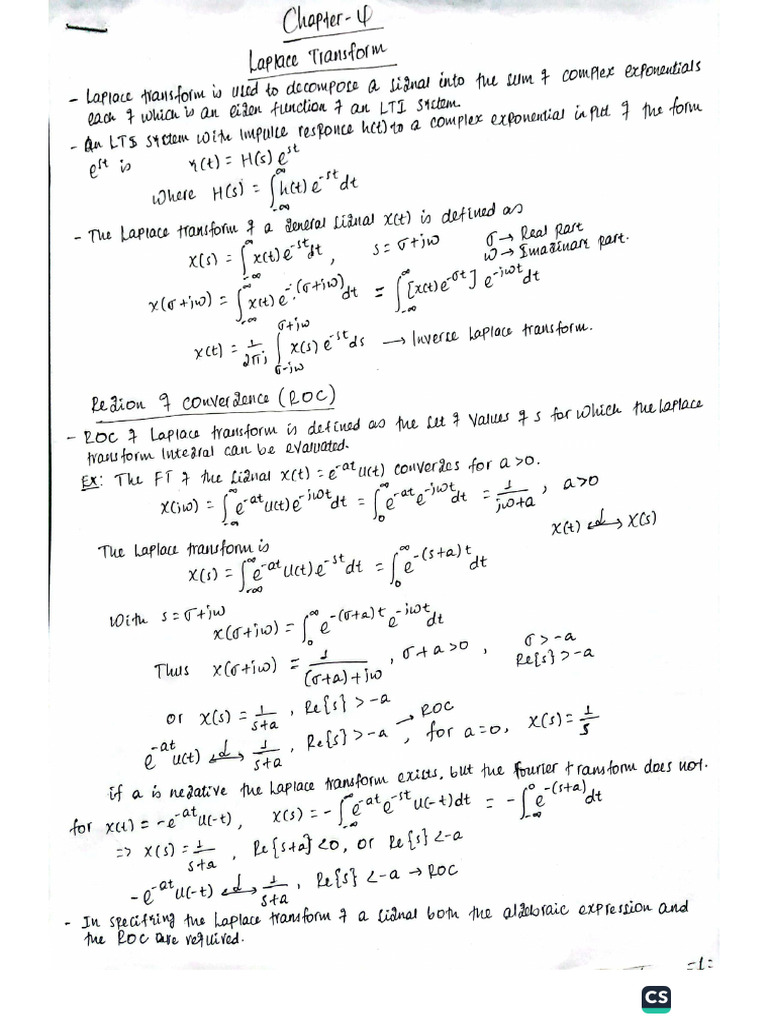 Chapter-4
Laplace Transform
- Laplace transform is used to decompose a signal into the sum of complex exponentials
each of which is an eigen function of an LTI system.
- An LTI system with impulse responce h(t) to a complex exponential input of the form
e^st is y(t) = H(s) e^st
where H(s) = ∫_{-∞}^{∞} h(t) e^-st dt
- The Laplace transform of a general signal x(t) is defined as
X(s) = ∫_{-∞}^{∞} x(t) e^-st dt, s = σ+jω σ → Real part
ω → Imaginary part.
X(σ+jω) = ∫_{-∞}^{∞} x(t) e^-(σ+jω) dt = ∫_{-∞}^{∞} [x(t) e^-σt] e^-jωt dt
x(t) = 1/2πj ∫_{σ-jω}^{σ+jω} X(s) e^-st ds → Inverse Laplace transform.
Region of convergence (ROC)
- ROC of Laplace transform is defined as the set of values of s for which the Laplace
transform integral can be evaluated.
Ex: The FT of the signal x(t) = e^-at u(t) converges for a>0.
X(jω) = ∫_{-∞}^{∞} e^-at u(t) e^-jωt dt = ∫_{0}^{∞} e^-at e^-jωt dt = 1/(jω+a), a>0
x(t) <-L-> X(s)
The Laplace transform is
X(s) = ∫_{-∞}^{∞} e^-at u(t) e^-st dt = ∫_{0}^{∞} e^-(s+a)t dt
With s = σ+jω
X(σ+jω) = ∫_{0}^{∞} e^-(σ+a)t e^-jωt dt
Thus X(σ+jω) = 1/((σ+a)+jω), σ+a>0, σ>-a
Re{s}>-a
or X(s) = 1/(s+a), Re{s} > -a
e^-at u(t) <-L-> 1/(s+a), Re{s} > -a → ROC, for a=0, X(s) = 1/s
if a is negative the Laplace transform exists, but the Fourier transform does not.
for x(t) = -e^-at u(-t), X(s) = -∫_{-∞}^{∞} e^-at e^-st u(-t) dt = -∫_{-∞}^{0} e^-(s+a) dt
=> X(s) = 1/(s+a), Re{s+a}<0, or Re{s} <-a
-e^-at u(-t) <-L-> 1/(s+a), Re{s} <-a → ROC
- In specifying the Laplace transform of a signal both the algebraic expression and
the ROC are required.
-1:
CS